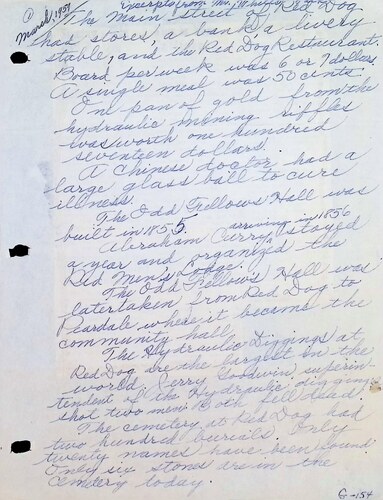 March 1957
Excerpts from
The Main Street of Red Dog
had stores, a bank, a livery
stable, and the Red Dog Restaurant.
Board per week was 6 or 7 dollars.
A single meal was 50 cents.
One pan of gold from the
hydraulic mining riffles
was worth one hundred
seventeen dollars.
A Chinese doctor had a
large glass ball to cure
illness.
The Odd Fellows Hall was
built in 1855.
arriving in 1856
Abraham stayed
a year and organized the
Red Men's Lodge.
The Odd Fellow's Hall was
later taken from Red Dog to
Peardale where it became the
community hall.
The Hydraulic Diggings at
Red Dog are the largest in the
world. Jerry Goodwin, superin-
tendent of the Hydraulic diggings
shot two men. Both fell dead.
The cemetery at Red Dog had
two hundred burials. Only
twenty names have been found
Only six stones are in the
cemetery today.
G-154